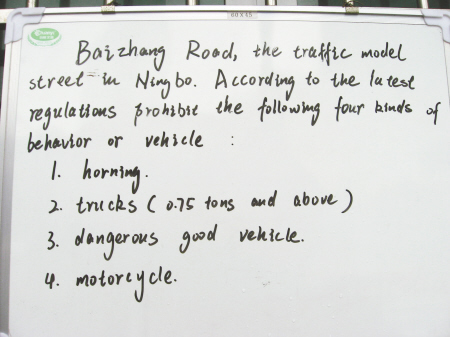 60 x 45
Baizhang Road, the traffic model
street in Ningbo. According to the latest
regulations prohibit the following four kinds of
behavior or vehicle :
1. horning.
2. trucks ( 0.75 tons and above )
3. dangerous good vehicle.
4. motorcycle.